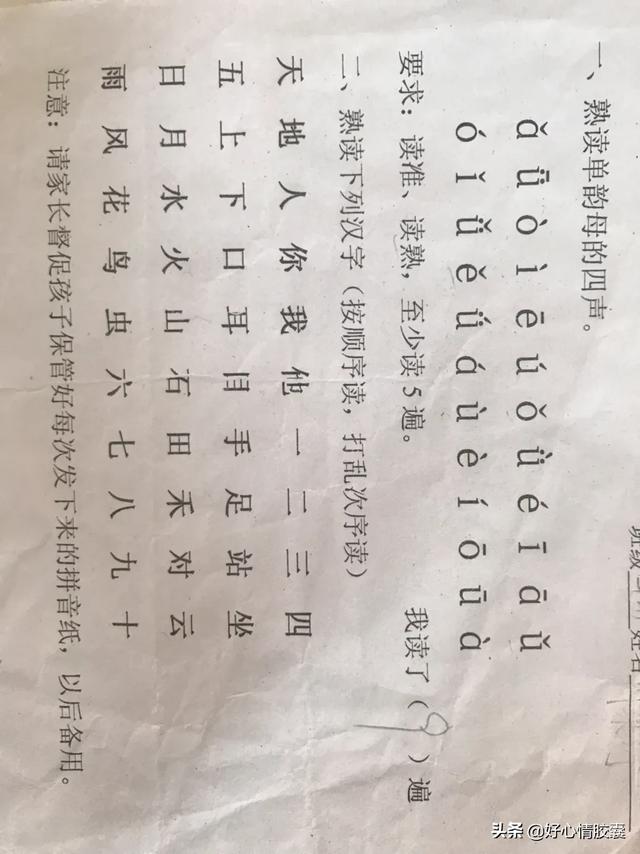 班级 姓名
一、熟读单韵母的四声。
ǎ ǖ ò ì ē ú ǒ ǜ é ī ā ǔ
ó ǐ ǚ ě ǘ á ù è í ō ū à
要求：读准、读熟，至少读5遍。 我读了（9）遍
二、熟读下列汉字（按顺序读，打乱次序读）
天 地 人 你 我 他 一 二 三 四
五 上 下 口 耳 目 手 足 站 坐
日 月 水 火 山 石 田 禾 对 云
雨 风 花 鸟 虫 六 七 八 九 十
注意：请家长督促孩子保管好每次发下来的拼音纸，以后备用。
头条 @好心情胶囊